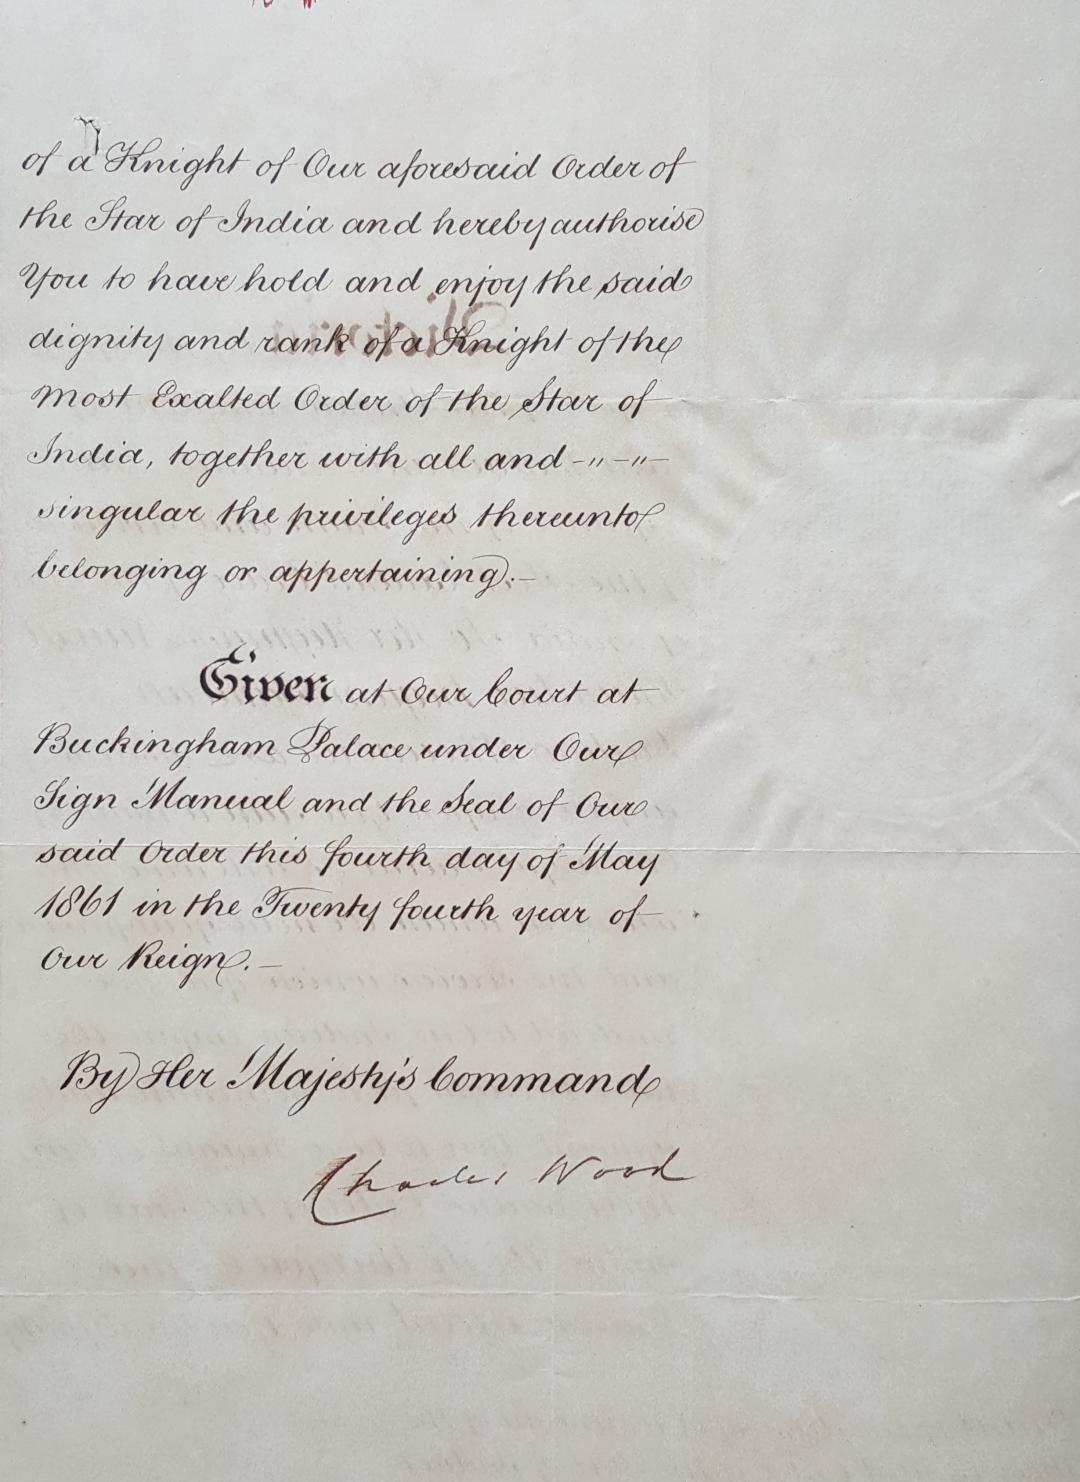 of a Knight of Our aforesaid Order of
the Star of India and hereby authorise
You to have hold and enjoy the said
dignity and rank of a Knight of the
Most Exalted Order of the Star of
India, together with all and -"-"-
singular the privileges thereunto
belonging or appertaining.-
Given at Our Court at
Buckingham Palace under Our
Sign Manual and the Seal of Our
said Order this fourth day of May
1861 in the Twenty fourth year of
Our Reign.-
By Her Majesty's Command
Charles Wood